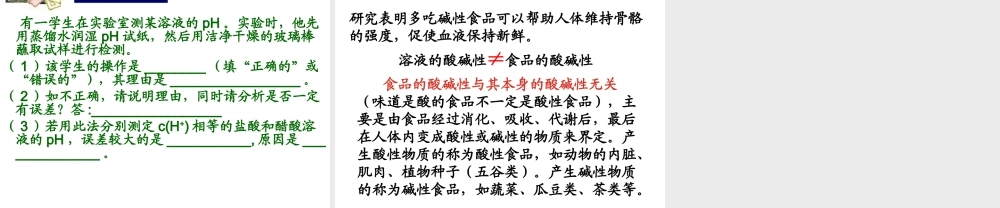 有一学生在实验室测某溶液的 pH 。实验时，他先
用蒸馏水润湿 pH 试纸，然后用洁净干燥的玻璃棒
蘸取试样进行检测。
（ 1 ）该学生的操作是 ________ （填“正确的”或
“错误的”），其理由是 _________________ 。
（ 2 ）如不正确，请说明理由，同时请分析是否一定
有误差？答 :_________________
（ 3 ）若用此法分别测定 c(H⁺) 相等的盐酸和醋酸溶
液的 pH ，误差较大的是 ___________, 原因是 ___
___________ 。
研究表明多吃碱性食品可以帮助人体维持骨骼
的强度，促使血液保持新鲜。
溶液的酸碱性≠食品的酸碱性
食品的酸碱性与其本身的酸碱性无关
（味道是酸的食品不一定是酸性食品），主
要是由食品经过消化、吸收、代谢后，最后
在人体内变成酸性或碱性的物质来界定。产
生酸性物质的称为酸性食品，如动物的内脏、
肌肉、植物种子（五谷类）。产生碱性物质
的称为碱性食品，如蔬菜、瓜豆类、茶类等。